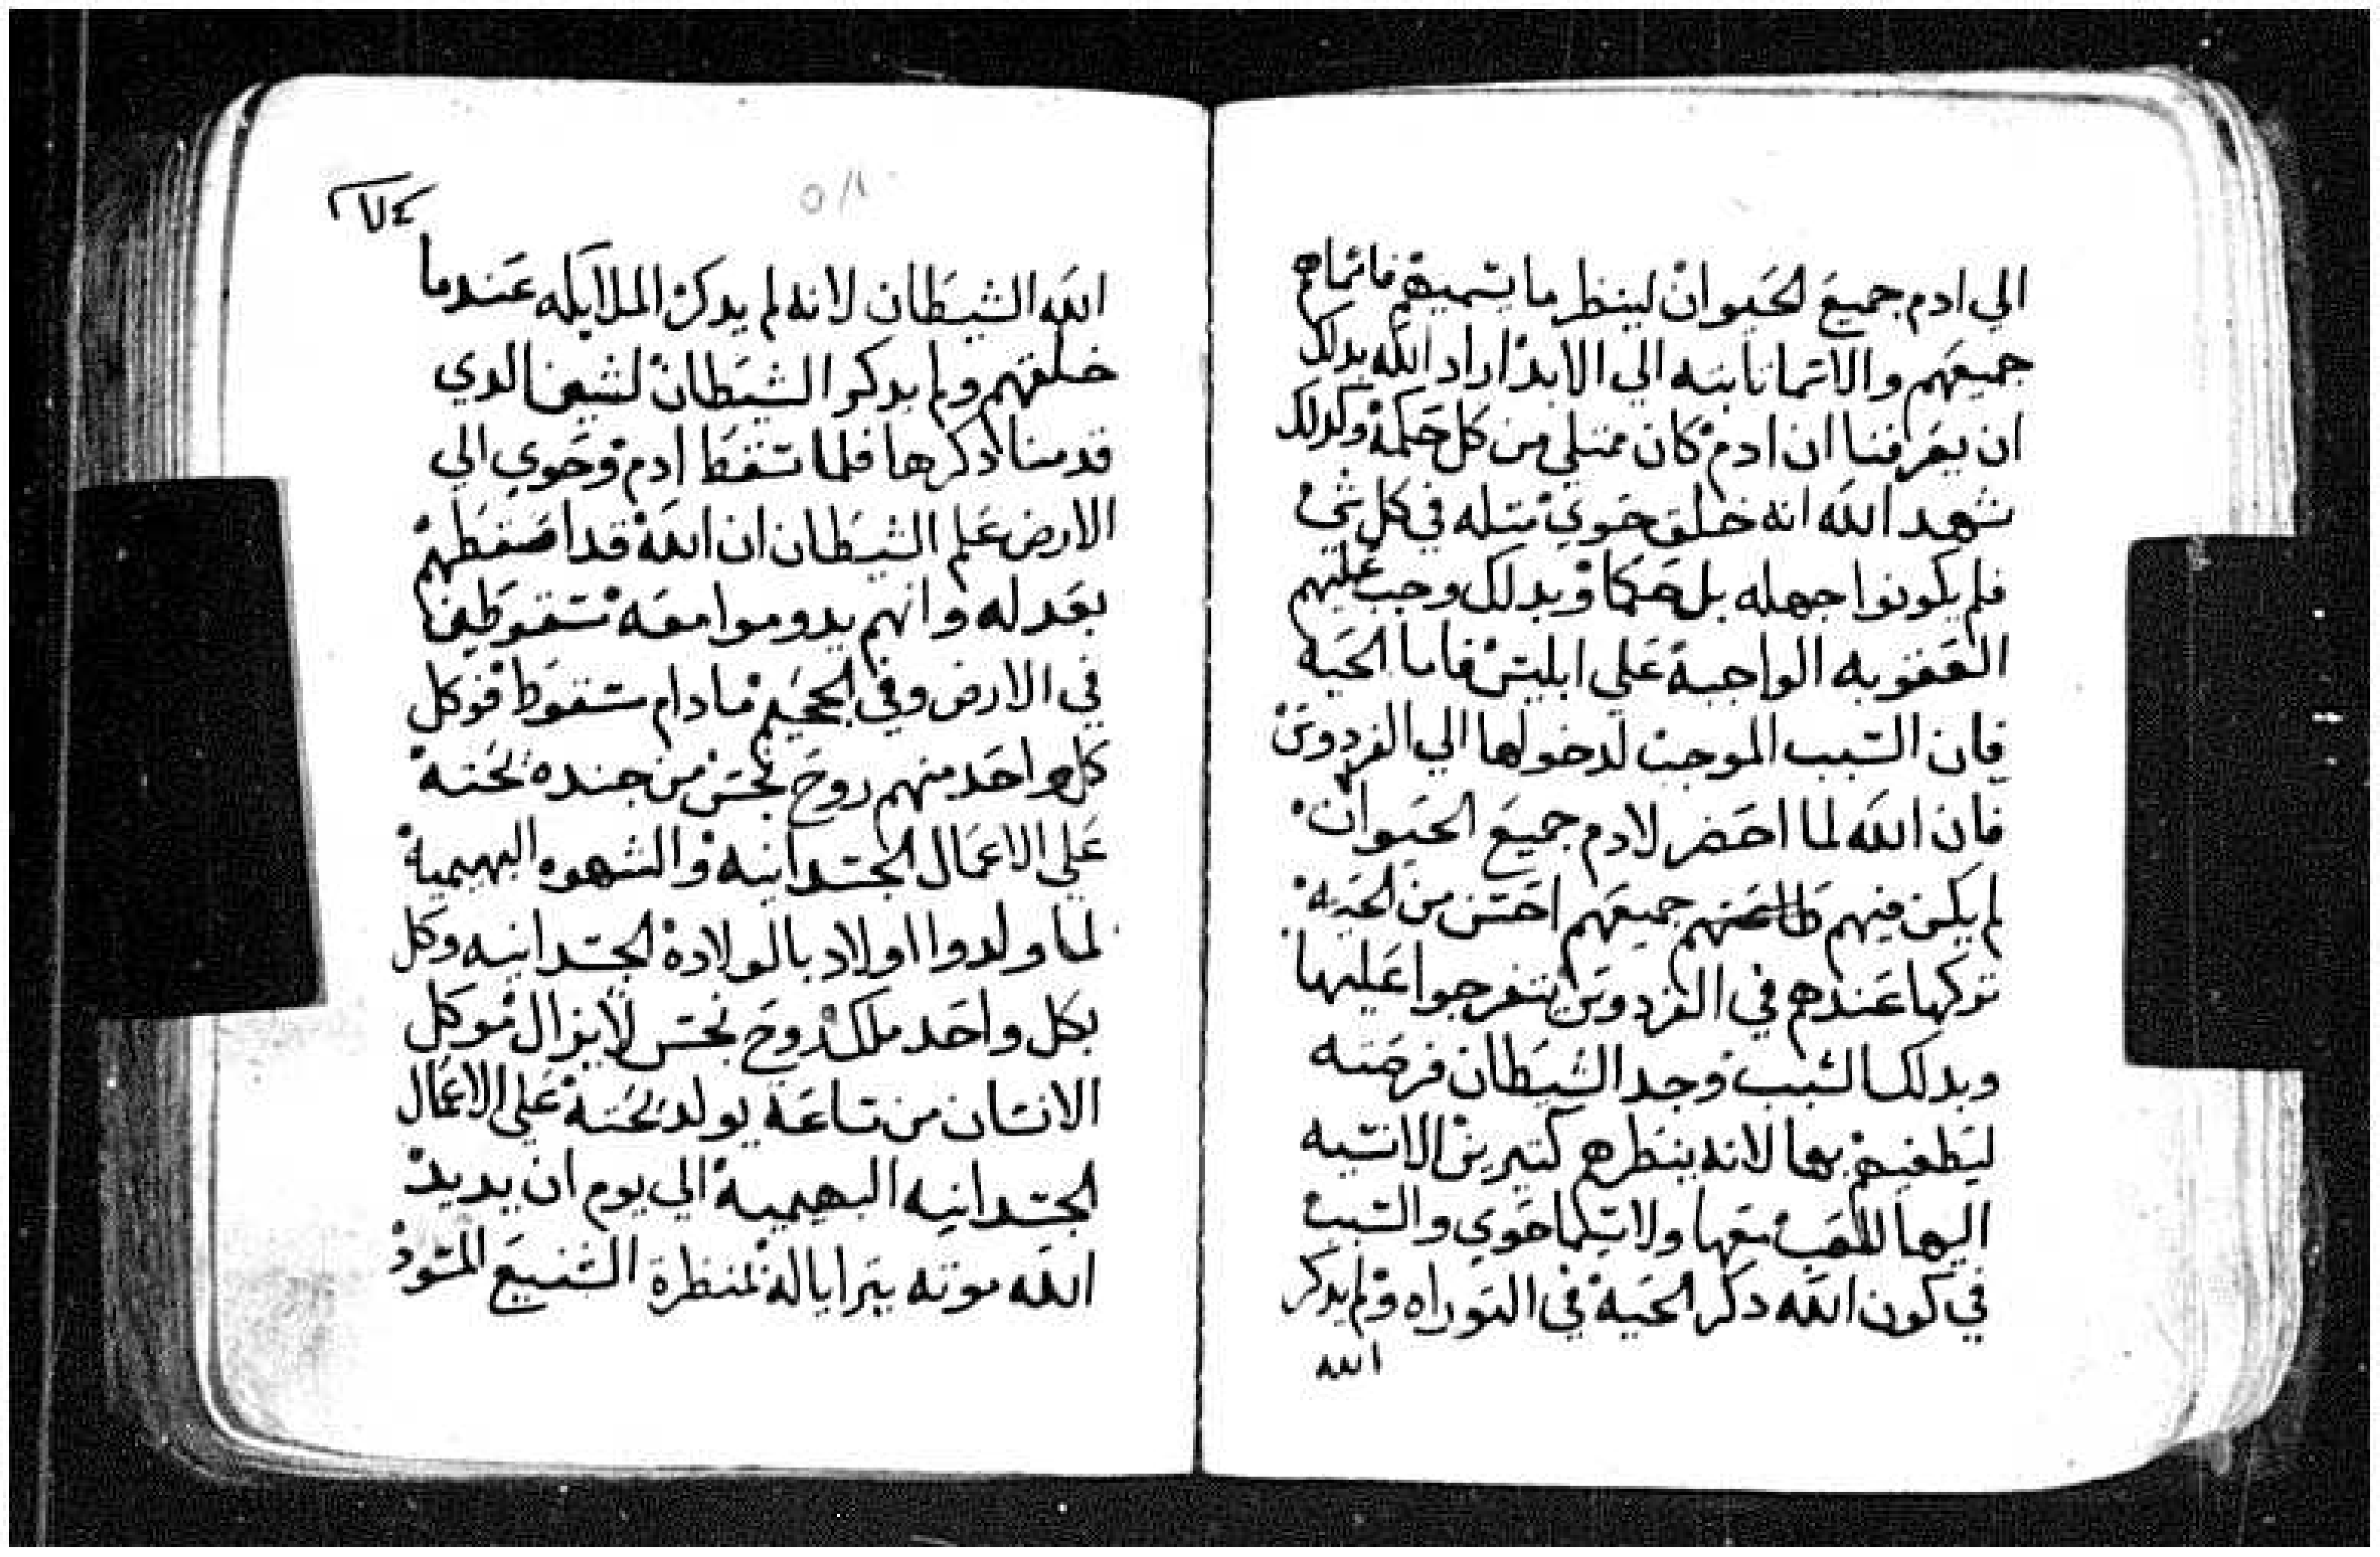 الي ادم جميع الحيوان لينظر ما يسميهم فاسماهم
جميعهم والاسما ثابته الي الابد اراد الله بدلك
ان يعرفنا ان ادم كان ممتلي من كل حكمة وكدلك
نشهد الله انه خلق حوي مثله في كل شي
فلم يكونوا جهله بل حكما وبدلك وجب عليهم
العقوبه الواجبة علي ابليس فاما الحيه
فان السبب الموجب لدخولها الي الفردوس
فان الله لما احضر لادم جميع الحيوان
لم يكن فيهم جميعهم احسن من الحيه
تركها عندهم في الفردوس يتفرجوا عليها
وبدلك السبب وجد الشيطان فرصته
ليطغيهم بها لانه ينظرهم كتيرين الانسبه
اليها اللعب معها ولا سيما حوي والسبب
في كون الله دكر الحية في التوراه ولم يدكر
الله
الله الشيطان لانه لم يدكر الملايكه عندما
خلقهم ولم يدكر الشيطان لشيين الدي
قدمنا دكرها فلما سقط ادم وحوي الي
الارض علم الشيطان ان الله قد اسقطهم
بعدله وانهم يدوموا معه سقوطين
في الارض وفي الجحيم ما دام سقوط فوكل
كل واحد منهم روح نجس من جنده تحته
علي الاعمال الجسدانيه والشهوه البهيمية
لما ولدوا اولاد بالولادة الجسدانيه وكل
بكل واحد ملك روح نجس لا يزال موكل
الانسان من ساعة يولد تحته علي الاعمال
الجسدانيه البهيمية الي يوم ان يريد
الله موته يترايا له بمنظرة الشنيع المسود